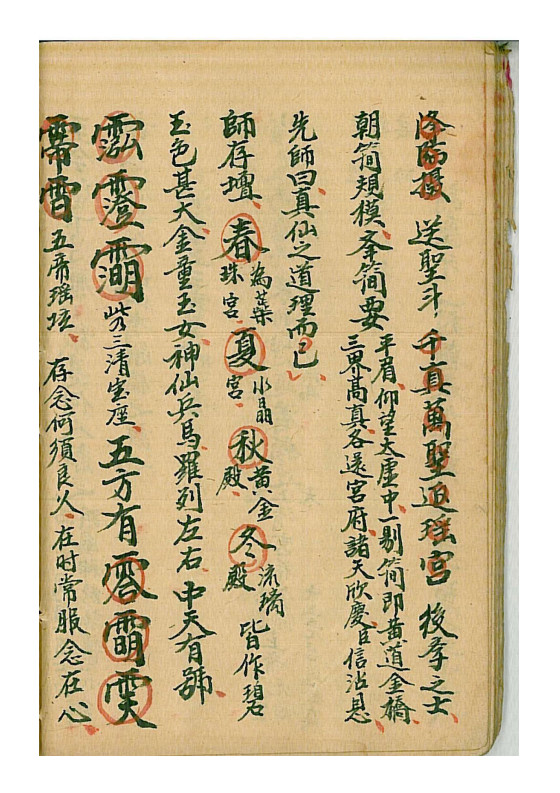 降臨攝 送聖斗 千真萬聖迎瑤宮 後學之士
朝簡規模 夲簡要 平眉仰望太虛中 一剔简即黃道金橋
三界高真各送宮府 諸天欣慶臣信沾恩
先師曰真仙之道理而已
師存壇 春 為蘂珠宮 夏 水晶宮 秋 黃金殿 冬 流璃殿 皆作碧
玉色甚大 金童玉女神仙兵馬羅列左右 中天有號
三清宝座 五方有
五帝瑶坛 存念何須良久 在时常服念在心